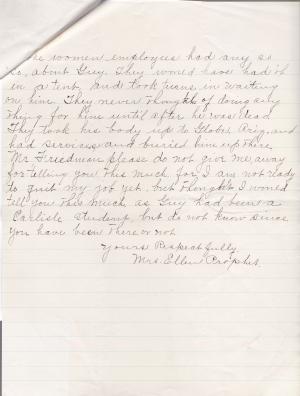 the women employees had any so
so, about Guy. They would have had 
in a tent, and took turns in waiting
on him. They never thought of doing any
thing for him until after he was dead
They took his body up to Globe, Ariz, and
had services and buried him up there.
Mr Friedman please do not give me away
for telling you this much, for I am not ready
to quit my job yet. but thought I would
tell you this much as Guy had been a
Carlisle student, but do not know since
you have been there or not
Yours Respectfully
Mrs. Ellen